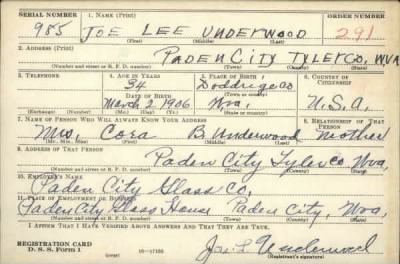 SERIAL NUMBER 1. NAME (Print) ORDER NUMBER
985 JOE LEE UNDERWOOD 291
(First) (Middle) (Last)
2. ADDRESS (Print)
PADEN CITY TYLER CO. W.VA
(Number and street or R. F. D. number) (Town) (County) (State)
3. TELEPHONE 4. AGE IN YEARS 5. PLACE OF BIRTH 6. COUNTRY OF CITIZENSHIP
34 Doddridge Co
DATE OF BIRTH (Town or county)
March 2, 1906 Wva. U.S.A.
(Exchange) (Number) (Mo.) (Day) (Yr.) (State or country)
7. NAME OF PERSON WHO WILL ALWAYS KNOW YOUR ADDRESS 8. RELATIONSHIP OF THAT PERSON
Mrs. Cora B Underwood mother
(Mr., Mrs., Miss) (First) (Middle) (Last)
9. ADDRESS OF THAT PERSON
Paden City Tyler Co Wva,
(Number and street or R. F. D. number) (Town) (County) (State)
10. EMPLOYER'S NAME
Paden City Glass Co,
11. PLACE OF EMPLOYMENT OR BUSINESS
Paden City Glass House Paden City, Wva,
(Number and street or R. F. D. number) (Town) (County) (State)
I AFFIRM THAT I HAVE VERIFIED ABOVE ANSWERS AND THAT THEY ARE TRUE.
REGISTRATION CARD
D. S. S. Form 1 (over) 16—17105 Joe L Underwood
(Registrant's signature)